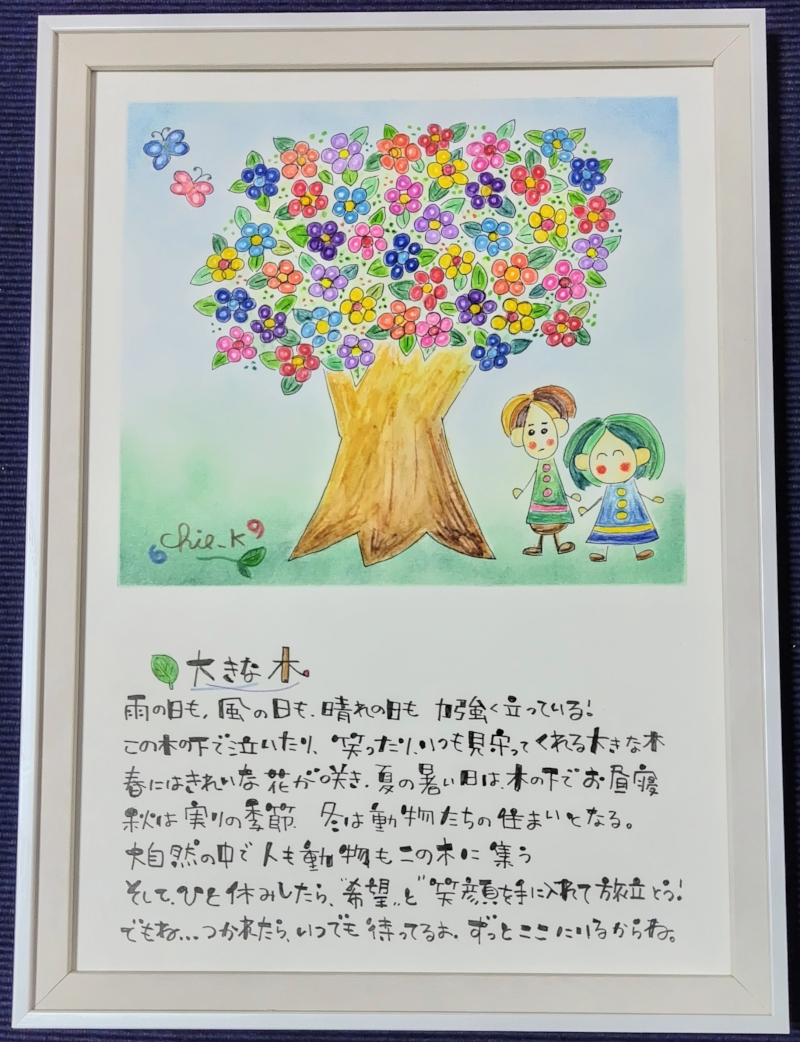 chie-K
大きな木
雨の日も、風の日も、晴れの日も 力強く立っている!
この木の下で泣いたり、笑ったり、いつも見守ってくれる大きな木
春にはきれいな花が咲き、夏の暑い日は、木の下でお昼寝
秋は実りの季節 冬は動物たちの住まいとなる。
大自然の中で人も動物もこの木に集う
そして、ひと休みしたら、“希望”と“笑顔を手に入れて旅立とう!
でもね...つかれたら、いつでも待ってるよ。ずっとここにいるからね。